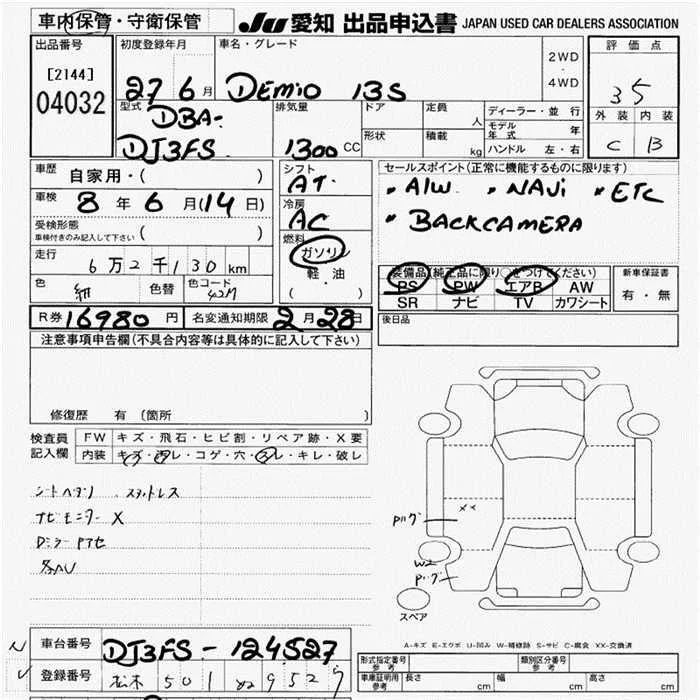 車内保管・守衛保管
JU 愛知 出品申込書 JAPAN USED CAR DEALERS ASSOCIATION
出品番号
[2144]
04032
初度登録年月
27 6 月
車名・グレード
DEMIO 13S
2WD
・
4WD
評価点
3 5
外装 内装
C B
型式
DBA-
DJ3FS
排気量
1300 CC
ドア
定員
人
形状
積載
kg
ディーラー・並行
モデル年式 年
ハンドル 左・右
車歴
自家用・( )
車検 8 年 6 月(14日)
受検形態
車検付きのみ記入して下さい ( )
走行
6万2千130km
色
色替
色コード
42M
シフト
AT
冷房
AC
燃料
ガソリン
軽油
( )
セールスポイント(正常に機能するものに限ります)
• A/W • NAVi • ETC
• BACKCAMERA
装備品(純正品に限り○をつけてください)
PS PW エアB AW
SR ナビ TV カワシート
新車保証書
有・無
R券 16980 円
名変通知期限 2月28日
後日品
注意事項申告欄(不具合内容等は具体的に記入して下さい)
修復歴 有 (箇所 )
検査員
記入欄
FW キズ・飛石・ヒビ割・リペア跡・X要
内装 キズ・汚レ・コゲ・穴・スレ・キレ・破レ
シートヘタリ . スタッドレス
ナビモニター X
Dミラー
××
W2
スペア
A-キズ E-エクボ U-凹み W-補修跡 S-サビ C-腐食 XX-交換済
車台番号
DJ3FS-124527
登録番号
松本 501 9527
形式指定番号
参考
類別区分番号
参考
車庫証明用
参考
長さ cm
幅 cm
高さ cm